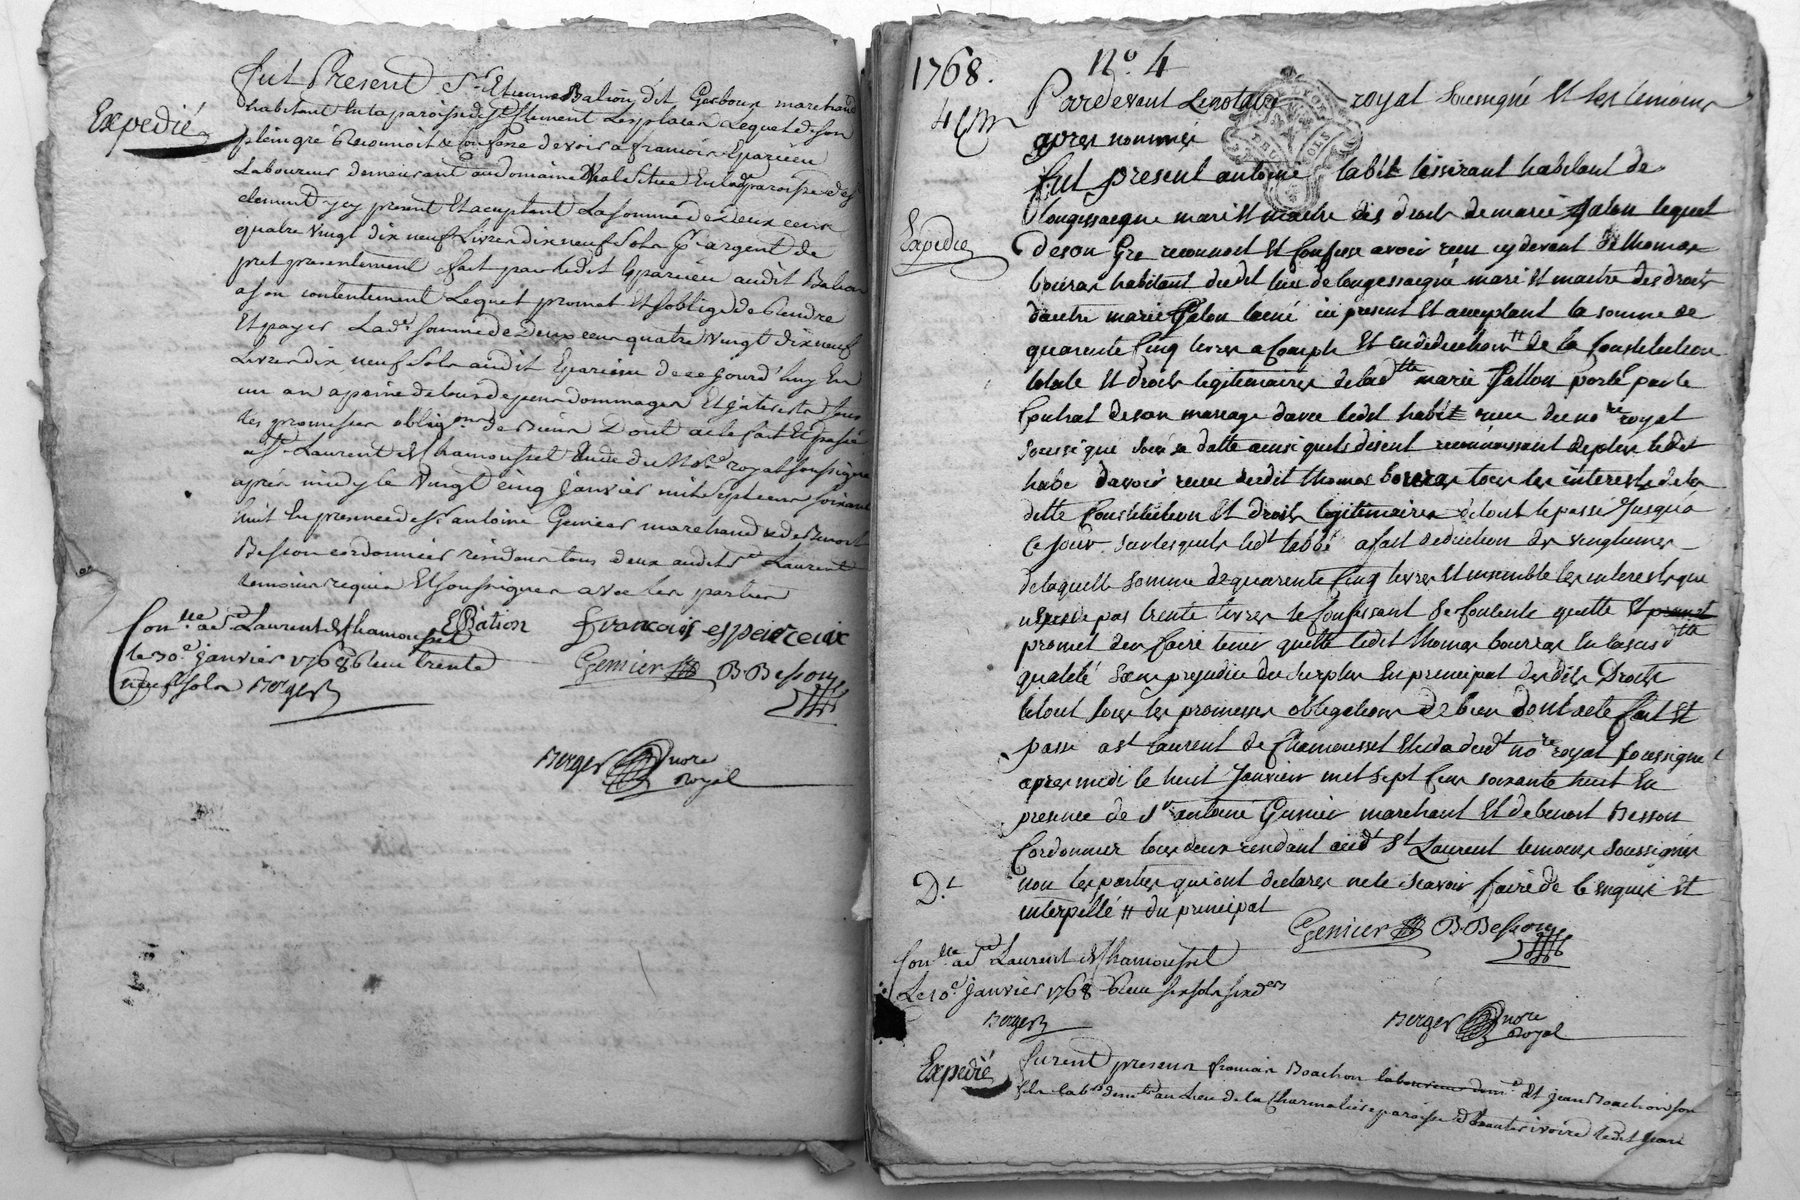 Expedié
fut Present Sr Etienne Bation dit Gerboux marchand
habitant En la paroisse de St Clement Les places Lequel de son
plein gré Reconnoit & Confesse devoir a francois Eparieu
Laboureur demeurant au domaine situé En lad paroisse de St
clement y cy present Et aceptant La somme de deux cens
quatre vingt dix neuf Livres dix neuf Sols pr argent de
pret presentement fait par ledit Eparieu audit Bation
a son contentement Lequel promet Et soblige de Rendre
Et payer Lade somme de deux cens quatre vingt dix neuf
Livres dix neuf Sols audit Eparieu de ce Jourd'huy En
un an a peine de tous depens dommages Et jnterests sous
les promesses obligons de Biens Dont acte fait Et passé
a St Laurent de Chamousset Etude du Nore royal soussigné
après midy le Vingt cinq janvier mil sept cens soixante
huit En presence de sr antoine Genier marchand & de Benoit
Besson cordonnier residans tous deux audit St Laurent
temoins requis Et soussignes avec les parties
EBâtion francois espeireuix
Genier B Besson
Conlle a St Laurent de Chamousset
le 30e janvier 1768 Reçu trente
neuf sols Berger
Berger nore
Royal
1768. No. 4
Pardevant Le notaire royal soussigné Et les temoins
apres nommes
fut present antoine labbé tisserant habitant de
longessaigne mari Et maitre des droits de marie Galon lequel
de son Gre reconnoit Et Confesse avoir reçu cy devant de thomas
bouras habitant dudit lieu de longessaigne mari Et maitre des droits
dautre marie Galon lainé ici present Et acceptant la somme de
quarente Cinq livres a Compte Et en deduction # de la Constitution
totale Et droits legitimaires de ladtte marie Gallon porté par le
Contrat de son mariage davec ledit labbé reçu du nore royal
soussigné sous sa datte ainsi quils disent reconnoissant de plus ledit
labé davoir reçu dudit thomas bouras tous les interests de la
ditte Constitution Et droits legitimaires de tout le passé Jusqu'a
Ce Jour sur lesquels ledt labbé a fait deduction des vingtiemes
de laquelle somme de quarente Cinq livres Et ensemble les interests que
nexcede pas trente livres le Confessant Se Contente quitte et promet
promet den faire tenir quitte ledit thomas bouras En lasusdtte
qualité Sans prejudice du surplus En principal desdits Droits
letout sous les promesses obligations de bien dont acte fait Et
passé a st Laurent de Chamousset Etude dudt nore royal soussigné
apres midi le huit Janvier mil sept Cens soixante huit En
presence de Sr antoine Genier marchant Et de benoit Besson
Cordonnier tous deux residant audt St Laurent temoins soussignés
non les parties qui ont declarés ne le scavoir faire de ce enquis Et
interpellé # du principal
Expedié
Dt
Genier B Besson
Conlle a St Laurent de Chamousset
Le 10e janvier 1768 Reçu six sols six ders
Berger
Berger nore
Royal
Expedié
furent presens francois Boachon laboureur demt Et jean Boachon son
fils labrs demts au Lieu de la Charmaliere paroisse d'hauterivoire ledit jean